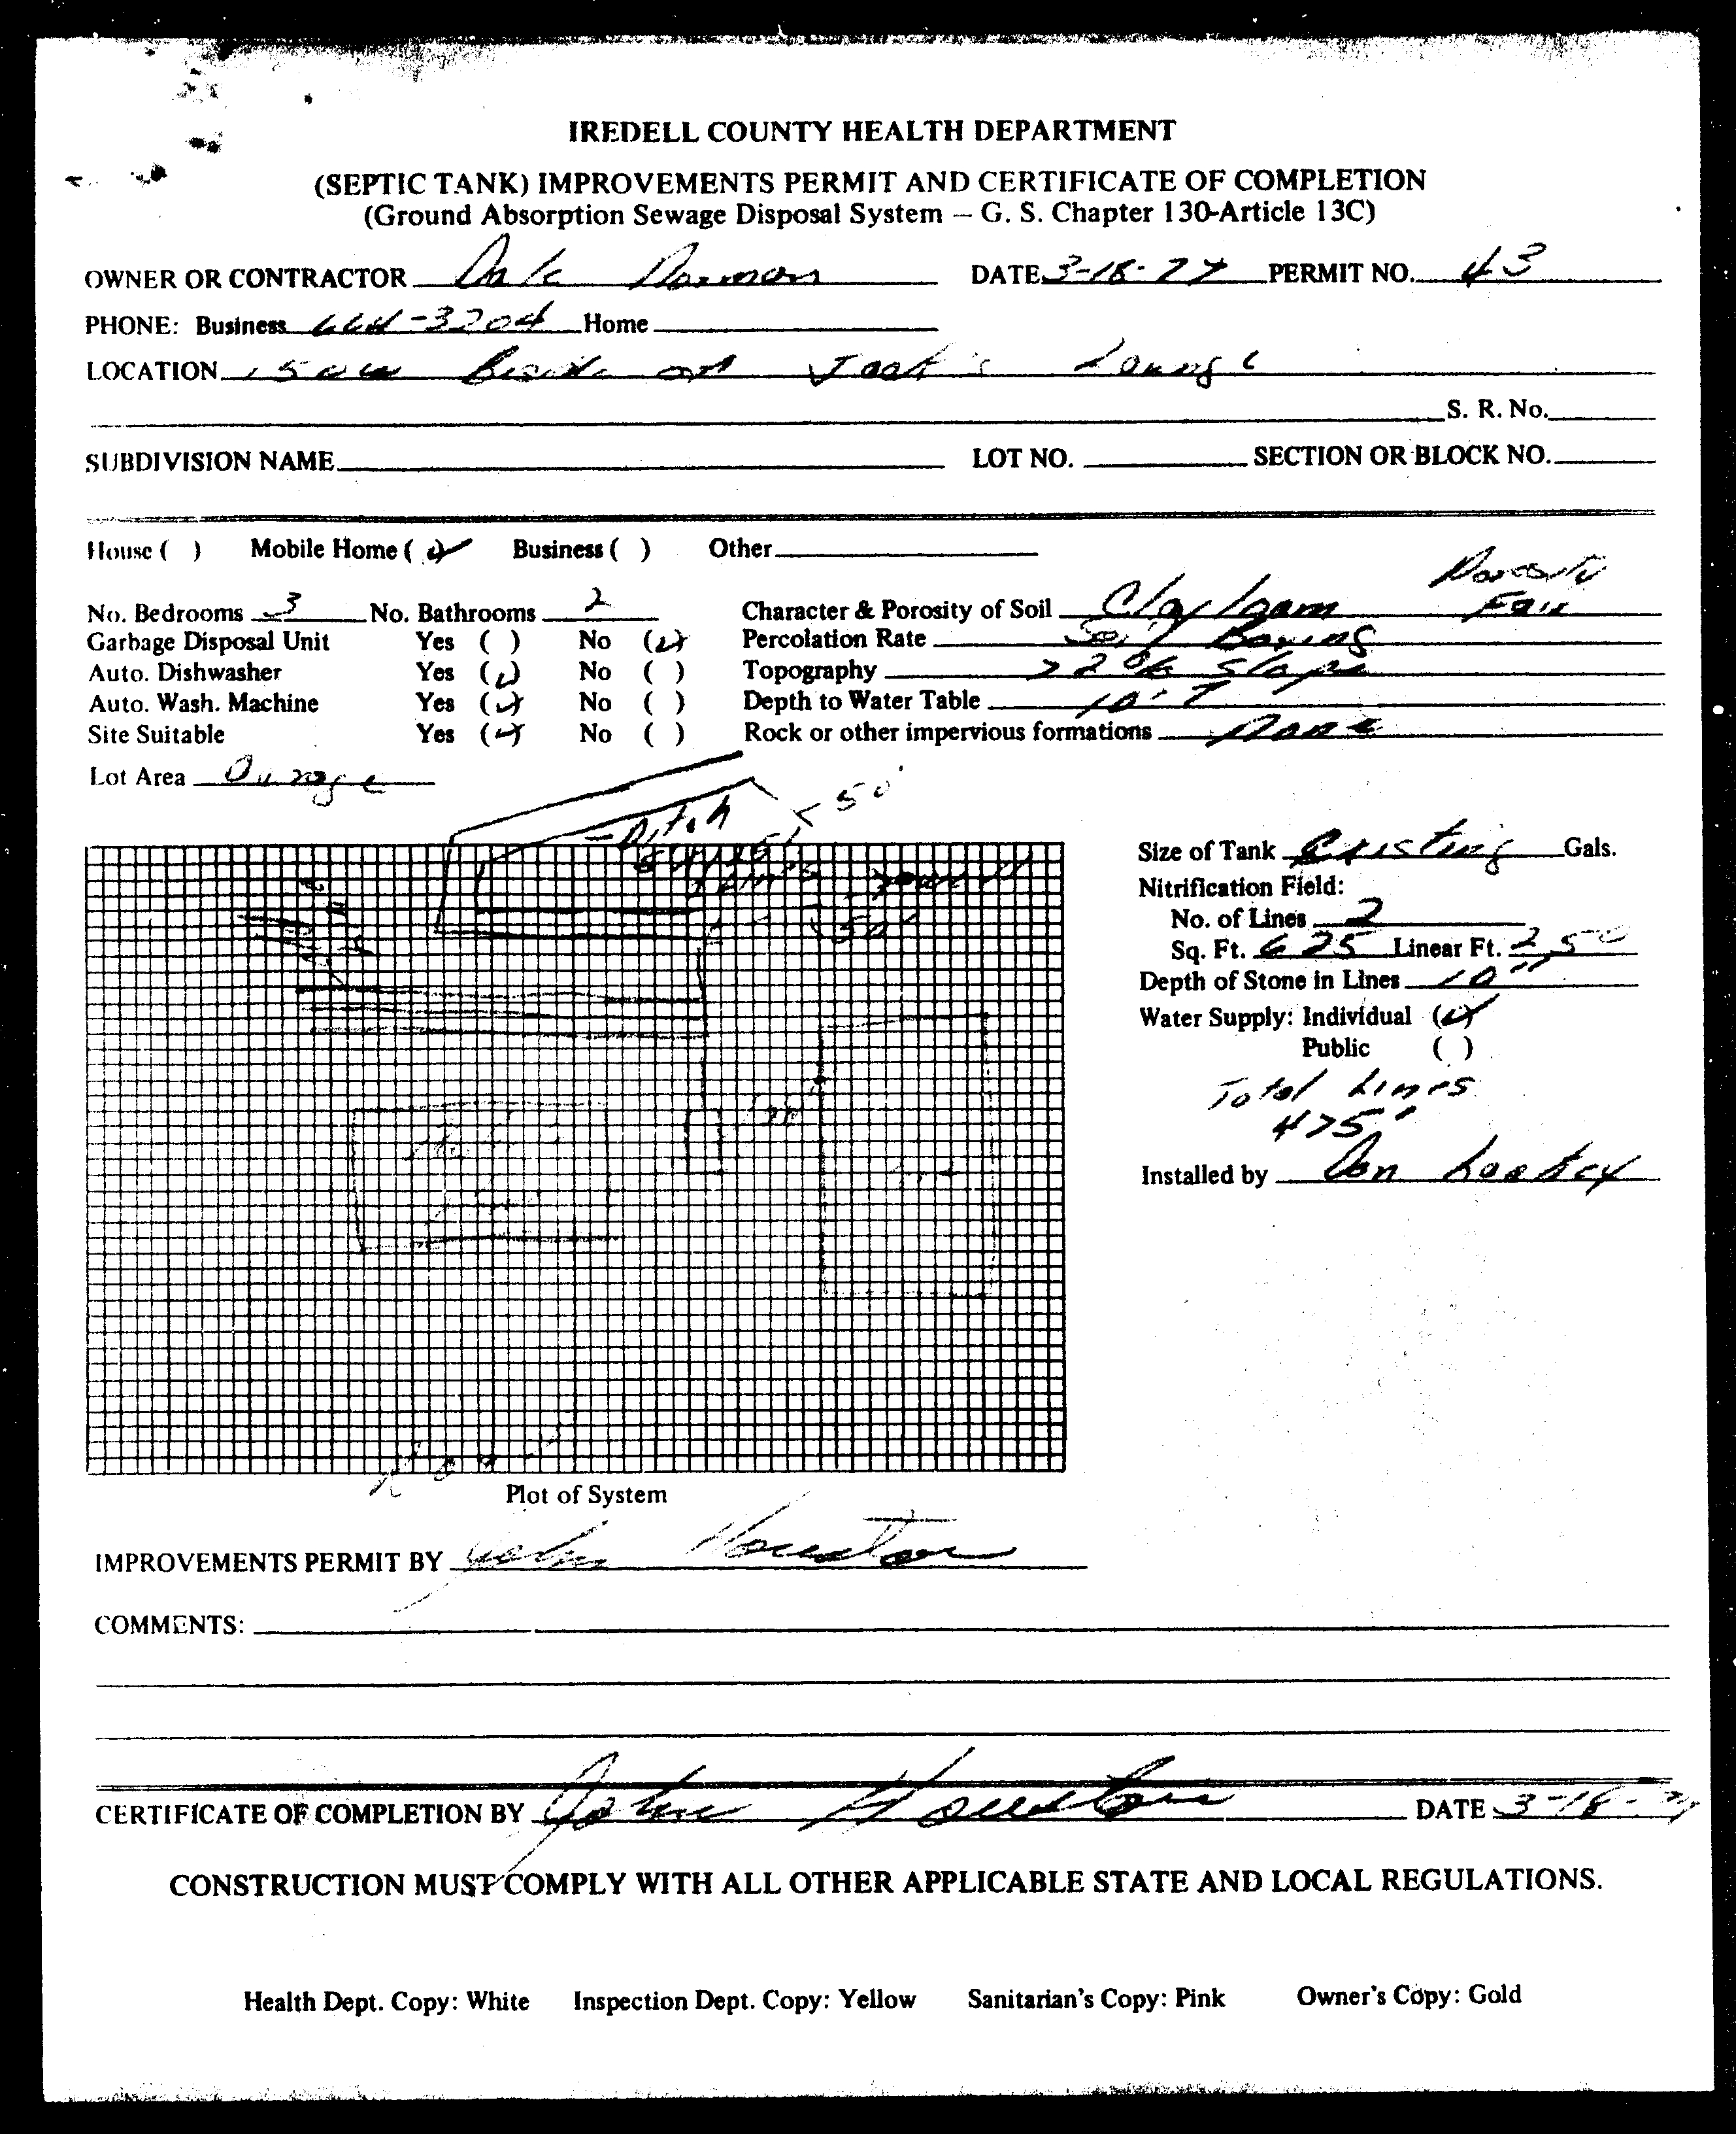 IREDELL COUNTY HEALTH DEPARTMENT
(SEPTIC TANK) IMPROVEMENTS PERMIT AND CERTIFICATE OF COMPLETION
(Ground Absorption Sewage Disposal System – G. S. Chapter 130-Article 13C)
OWNER OR CONTRACTOR DATE 3-18-77 PERMIT NO. 43
PHONE: Business 664-3204 Home
LOCATION 150 W Beside Jack's Lounge
S. R. No.
SUBDIVISION NAME LOT NO. SECTION OR BLOCK NO.
House ( ) Mobile Home (✓) Business ( ) Other
No. Bedrooms 3 No. Bathrooms 2 Character & Porosity of Soil Clay loam Porosity Fair
Garbage Disposal Unit Yes ( ) No (✓) Percolation Rate Soil Boring
Auto. Dishwasher Yes (✓) No ( ) Topography >2% slope
Auto. Wash. Machine Yes (✓) No ( ) Depth to Water Table 10' +
Site Suitable Yes (✓) No ( ) Rock or other impervious formations None
Lot Area
Ditch <50'
50'
Size of Tank Existing Gals.
Nitrification Field:
No. of Lines 2
Sq. Ft. 625 Linear Ft. 250
Depth of Stone in Lines 10"
Water Supply: Individual (✓)
Public ( )
Total Lines
475'
Installed by Don
Plot of System
IMPROVEMENTS PERMIT BY John Houston
COMMENTS:
CERTIFICATE OF COMPLETION BY John Houston DATE 3-18-77
CONSTRUCTION MUST COMPLY WITH ALL OTHER APPLICABLE STATE AND LOCAL REGULATIONS.
Health Dept. Copy: White Inspection Dept. Copy: Yellow Sanitarian's Copy: Pink Owner's Copy: Gold